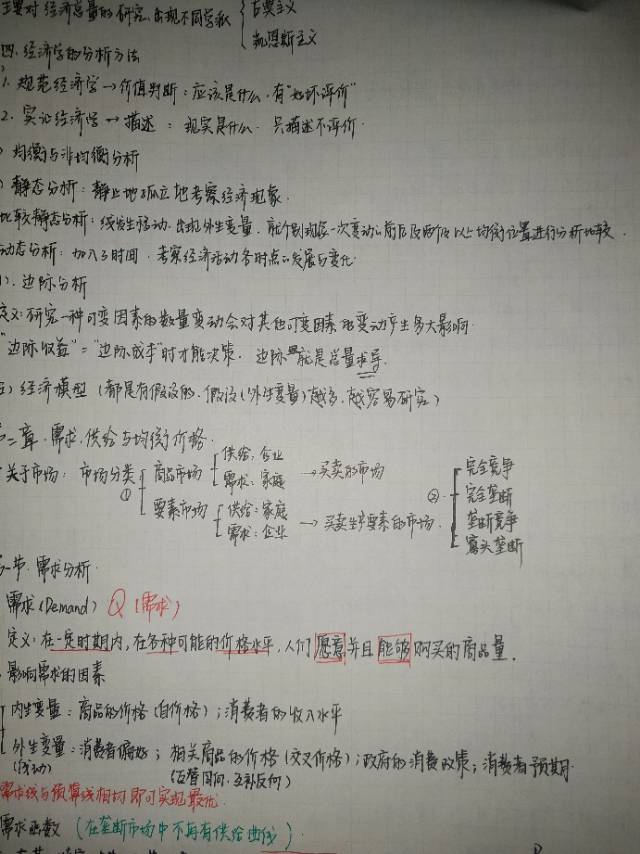 主要对经济总量的研究.出现不同学派 古典主义
凯恩斯主义
四.经济学的分析方法
1.规范经济学→价值判断:应该是什么.有"好坏评价"
2.实证经济学→描述:现实是什么.只描述不评价.
)均衡与非均衡分析
)静态分析:静止地孤立地考察经济现象.
比较静态分析:线发生移动.出现外生变量.就个别现象一次变动的前后及两个以上均衡位置进行分析比较.
动态分析:加入了时间.考察经济活动各时点的发展与变化.
).边际分析
定义:研究一种可变因素的数量变动会对其他可变因素的变动产生多大影响.
"边际收益"="边际成本"时才能决策.边际 就是总量求导.
五)经济模型(都是有假设的.假设(外生变量)越多.越容易研究)
二章.需求.供给与均衡价格.
关于市场:市场分类① 商品市场 供给:企业
需求:家庭 →买卖的市场
要素市场 供给:家庭
需求:企业 →买卖生产要素的市场.
② 完全竞争
完全垄断
垄断竞争
寡头垄断
一节.需求分析.
需求(Demand) Q(需求)
定义:在一定时期内,在各种可能的价格水平,人们愿意并且能够购买的商品量.
影响需求的因素
内生变量:商品的价格(自价格);消费者的收入水平
外生变量:消费者偏好;相关商品的价格(交叉价格);政府的消费政策;消费者预期.
(互替同向.互补反向)
需求线与预算线相切即可实现最优.
需求函数(在垄断市场中不再有供给曲线)